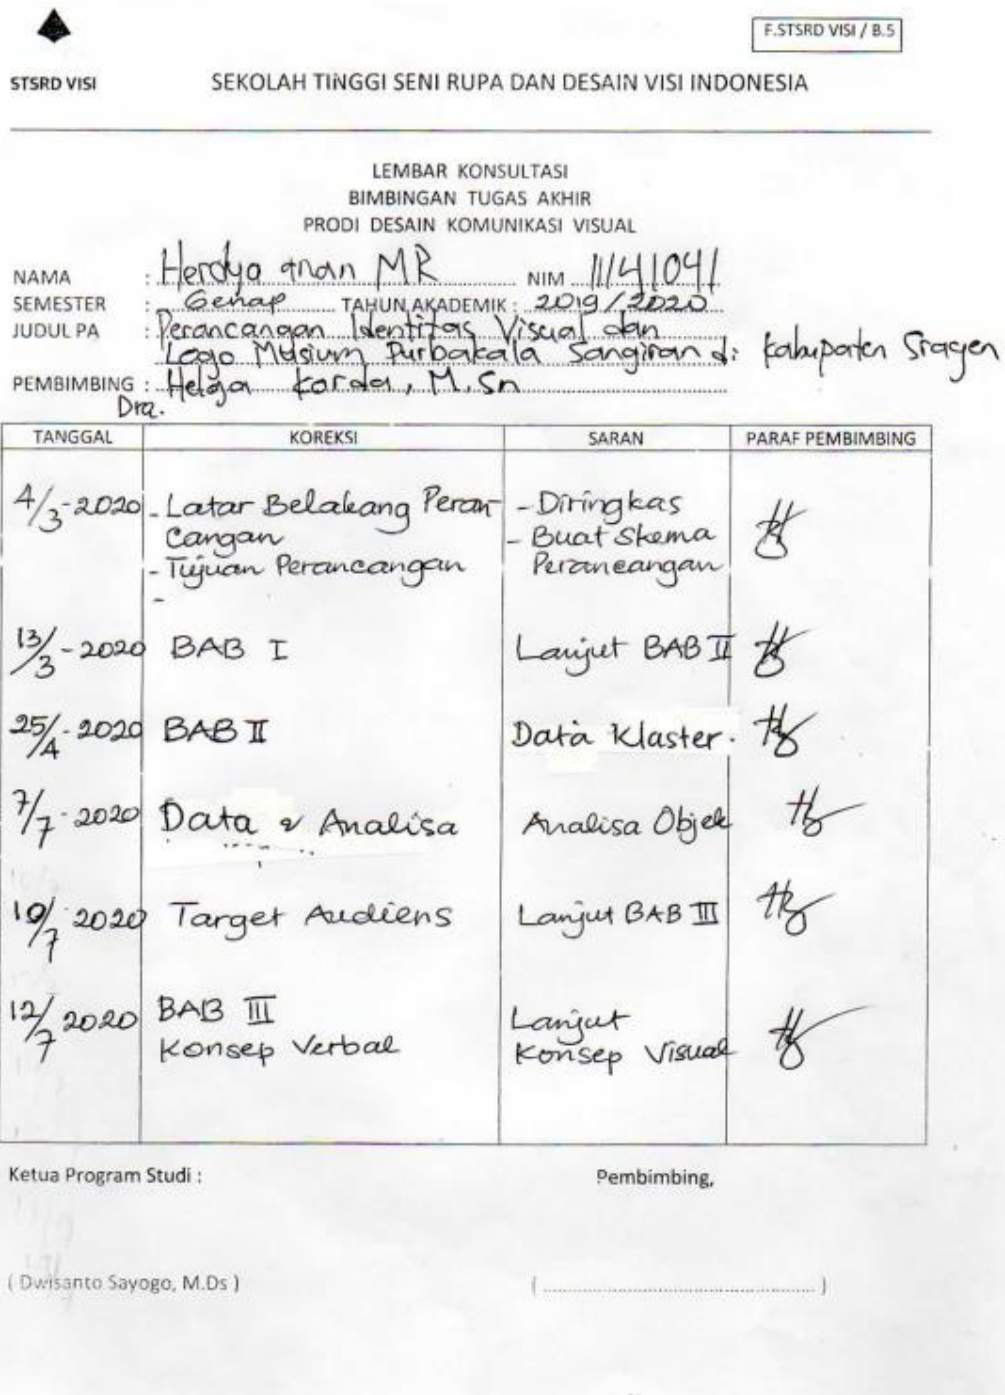 F.STSRD VISI / B.5
STSRD VISI
SEKOLAH TINGGI SENI RUPA DAN DESAIN VISI INDONESIA
LEMBAR KONSULTASI
BIMBINGAN TUGAS AKHIR
PRODI DESAIN KOMUNIKASI VISUAL
NAMA : Herdya MR NIM 11141041
SEMESTER : Genap TAHUN AKADEMIK : 2019/2020
JUDUL PA : Perancangan Identitas Visual dan
Logo Musium Purbakala Sangiran di Kabupaten Sragen
PEMBIMBING : Helga Korda, M.Sn
Dra.
TANGGAL KOREKSI SARAN PARAF PEMBIMBING
4/3-2020 - Latar Belakang Peran- - Diringkas
cangan - Buat Skema
- Tujuan Perancangan Perancangan
-
13/3-2020 BAB I Lanjut BAB II
25/4-2020 BAB II Data Klaster.
7/7-2020 Data & Analisa Analisa Objek
10/7 2020 Target Audiens Lanjut BAB III
12/7 2020 BAB III Lanjut
Konsep Verbal Konsep Visual
Ketua Program Studi : Pembimbing,
( Dwisanto Sayogo, M.Ds ) (..............................................)